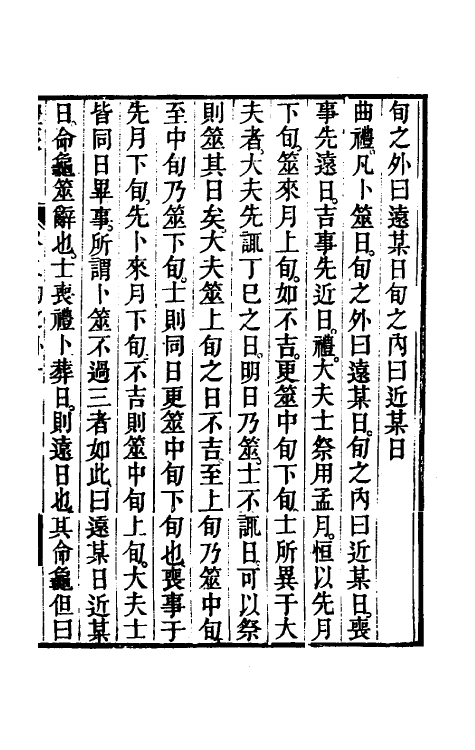 旬之外曰遠某日旬之內曰近某日
曲禮。凡卜筮日。旬之外曰遠某日。旬之內曰近某日。喪
事先遠日。吉事先近日。禮。大夫士祭用孟月。恒以先月
下旬。筮來月上旬。如不吉。更筮中旬下旬。士所異于大
夫者。大夫先諏丁巳之日。明日乃筮。士不諏日。可以祭
則筮其日矣。大夫筮上旬之日不吉。至上旬乃筮中旬。
至中旬乃筮下旬。士則同日更筮中旬下旬也。喪事于
先月下旬。先卜來月下旬。不吉則筮中旬上旬。大夫士
皆同日畢事。所謂卜筮不過三者如此。曰遠某日近某
日。命龜筮辭也。士喪禮卜葬日。則遠日也。其命龜但曰